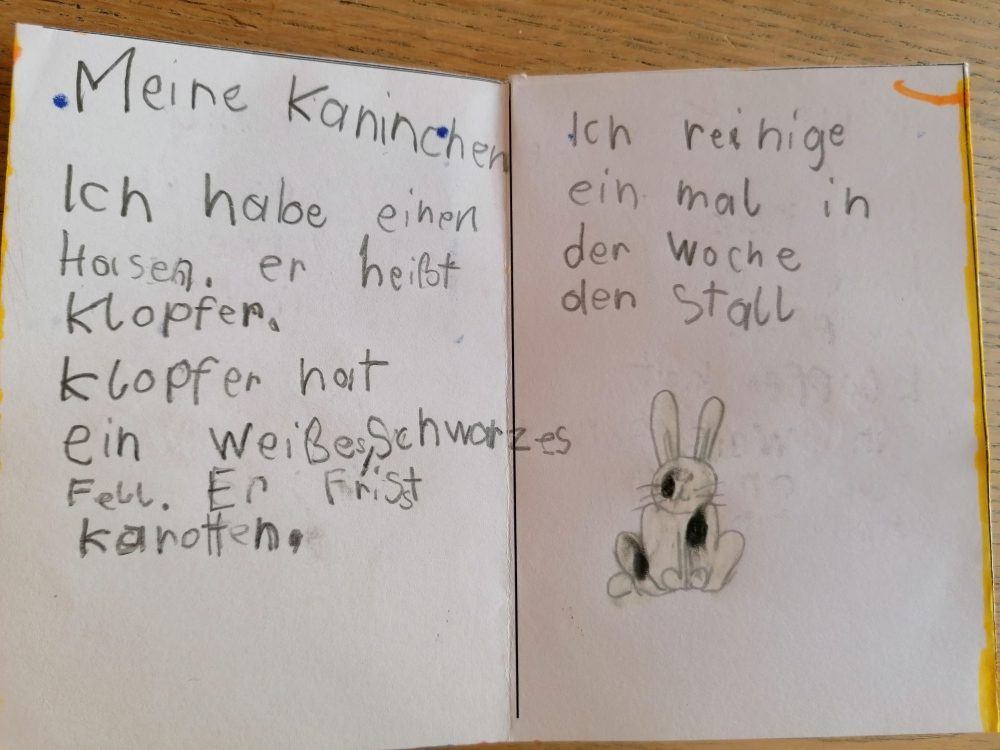 Meine Kaninchen
Ich habe einen
Hasen. er heißt
Klopfer.
Klopfer hat
ein weißes, Schwarzes
Fell. Er Frisst
karotten.
Ich reinige
ein mal in
der Woche
den Stall